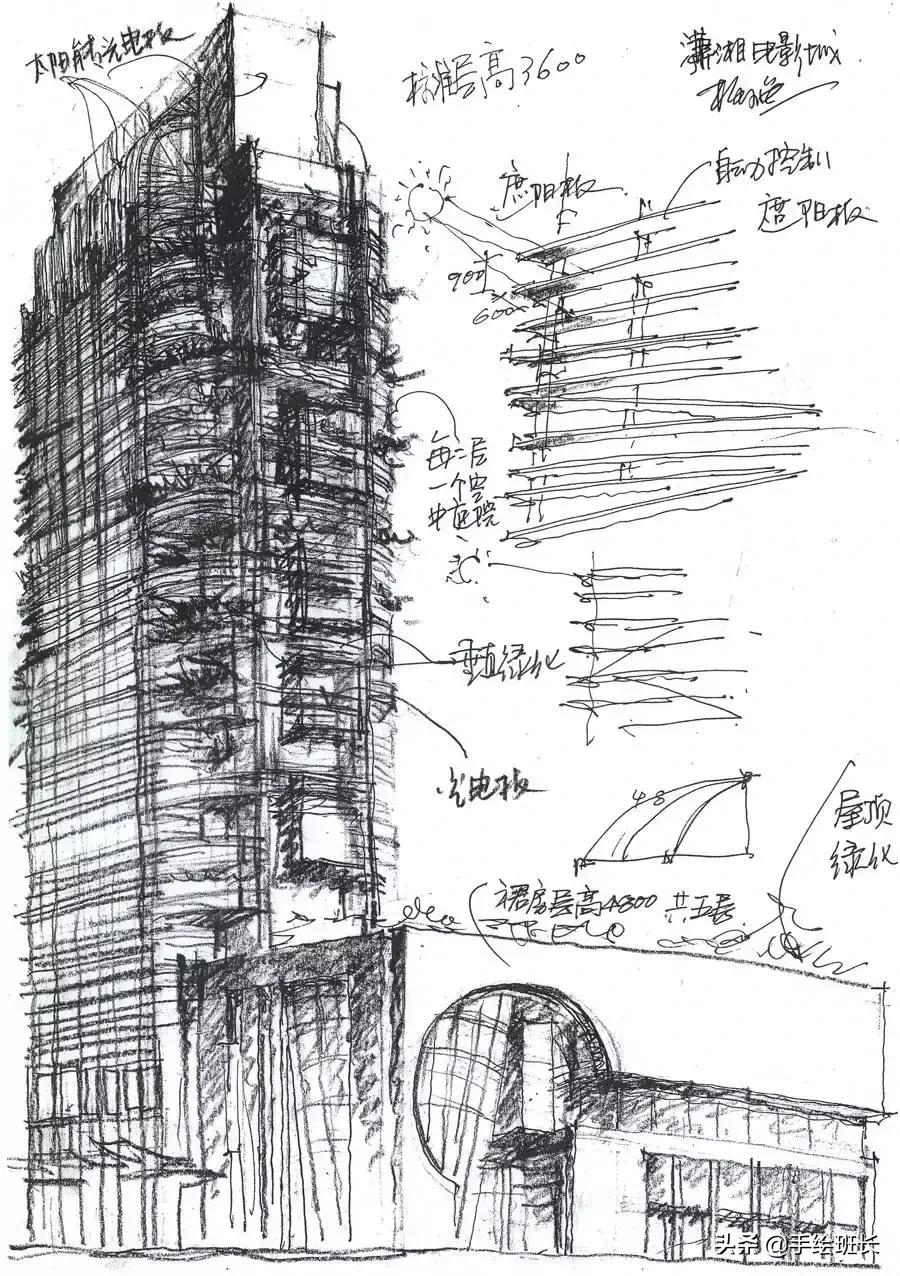 太阳能光电板
标准层高3600
潇湘电影城
遮阳板
自动控制
遮阳板
900
600
每二层
一个空
中庭院
垂直绿化
光电板
48
屋顶
绿化
裙房层高4800 共五层
头条 @手绘班长